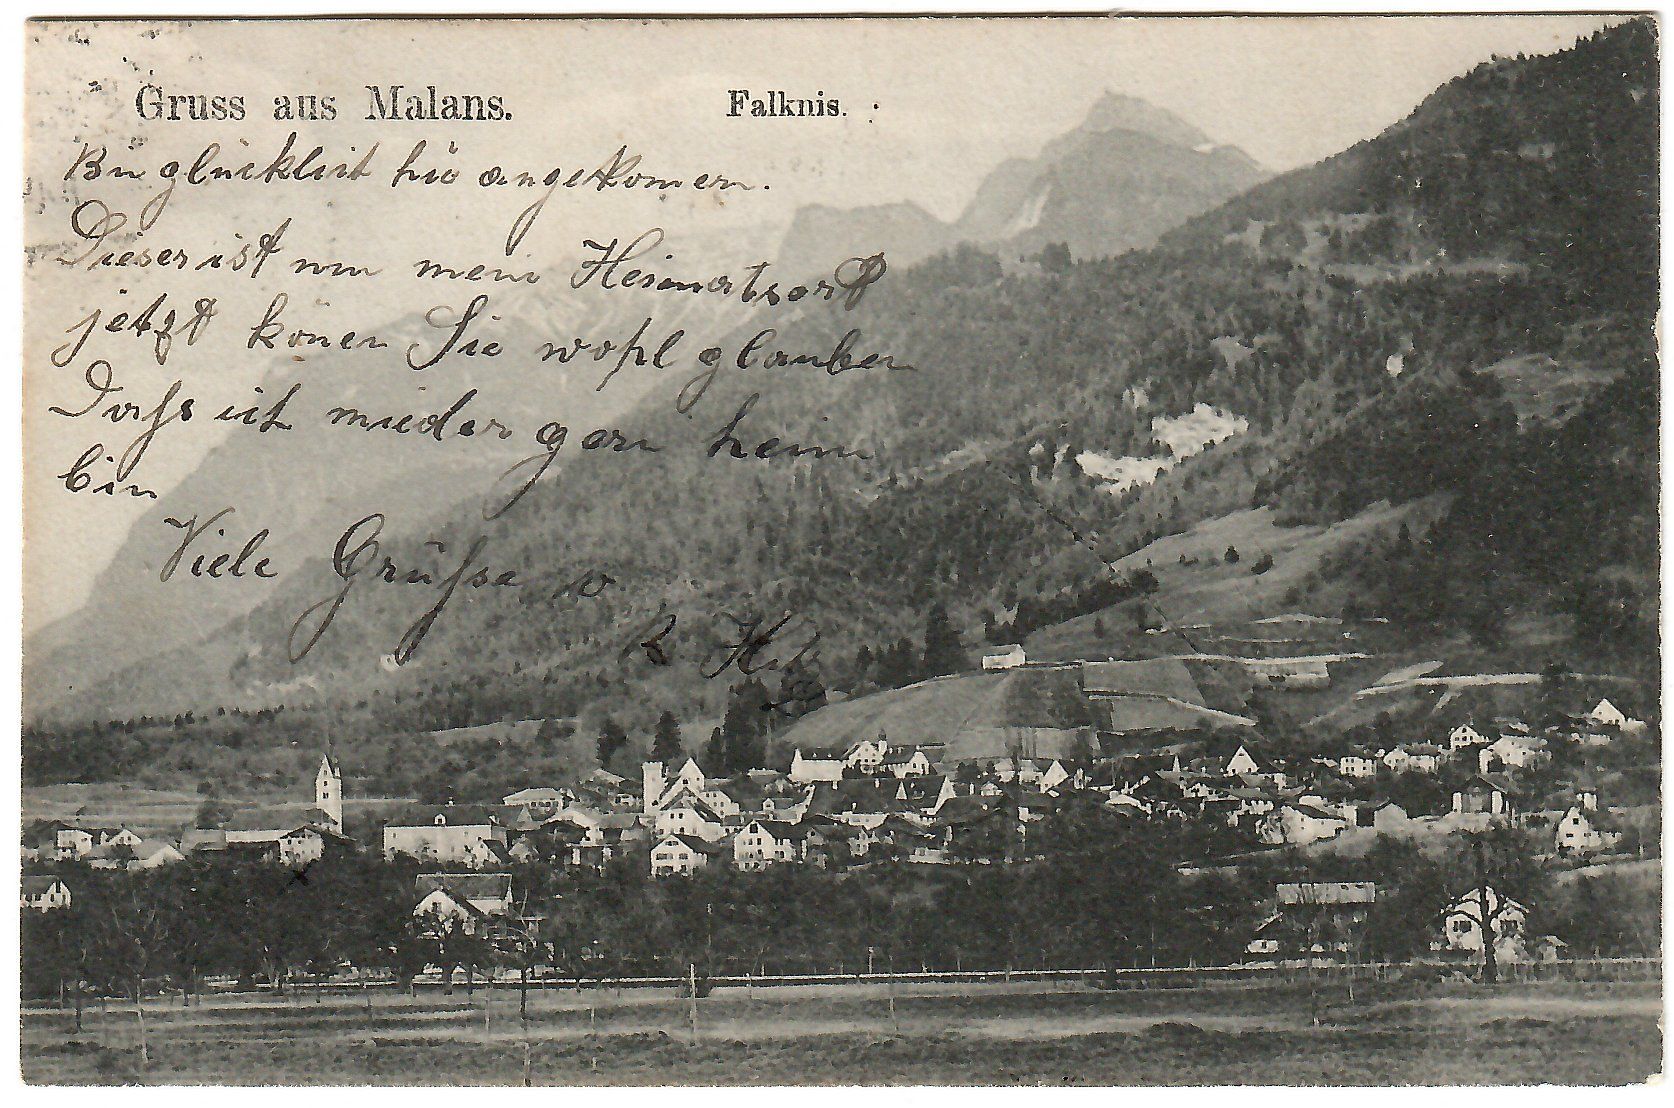 Gruss aus Malans. Falknis.
Bin glücklich hie angekomen.
Dieser ist nun mein Heimatsort
jetzt könen Sie wohl glauben
Dass ich wieder gern heim
bin
Viele Grüsse v.
B